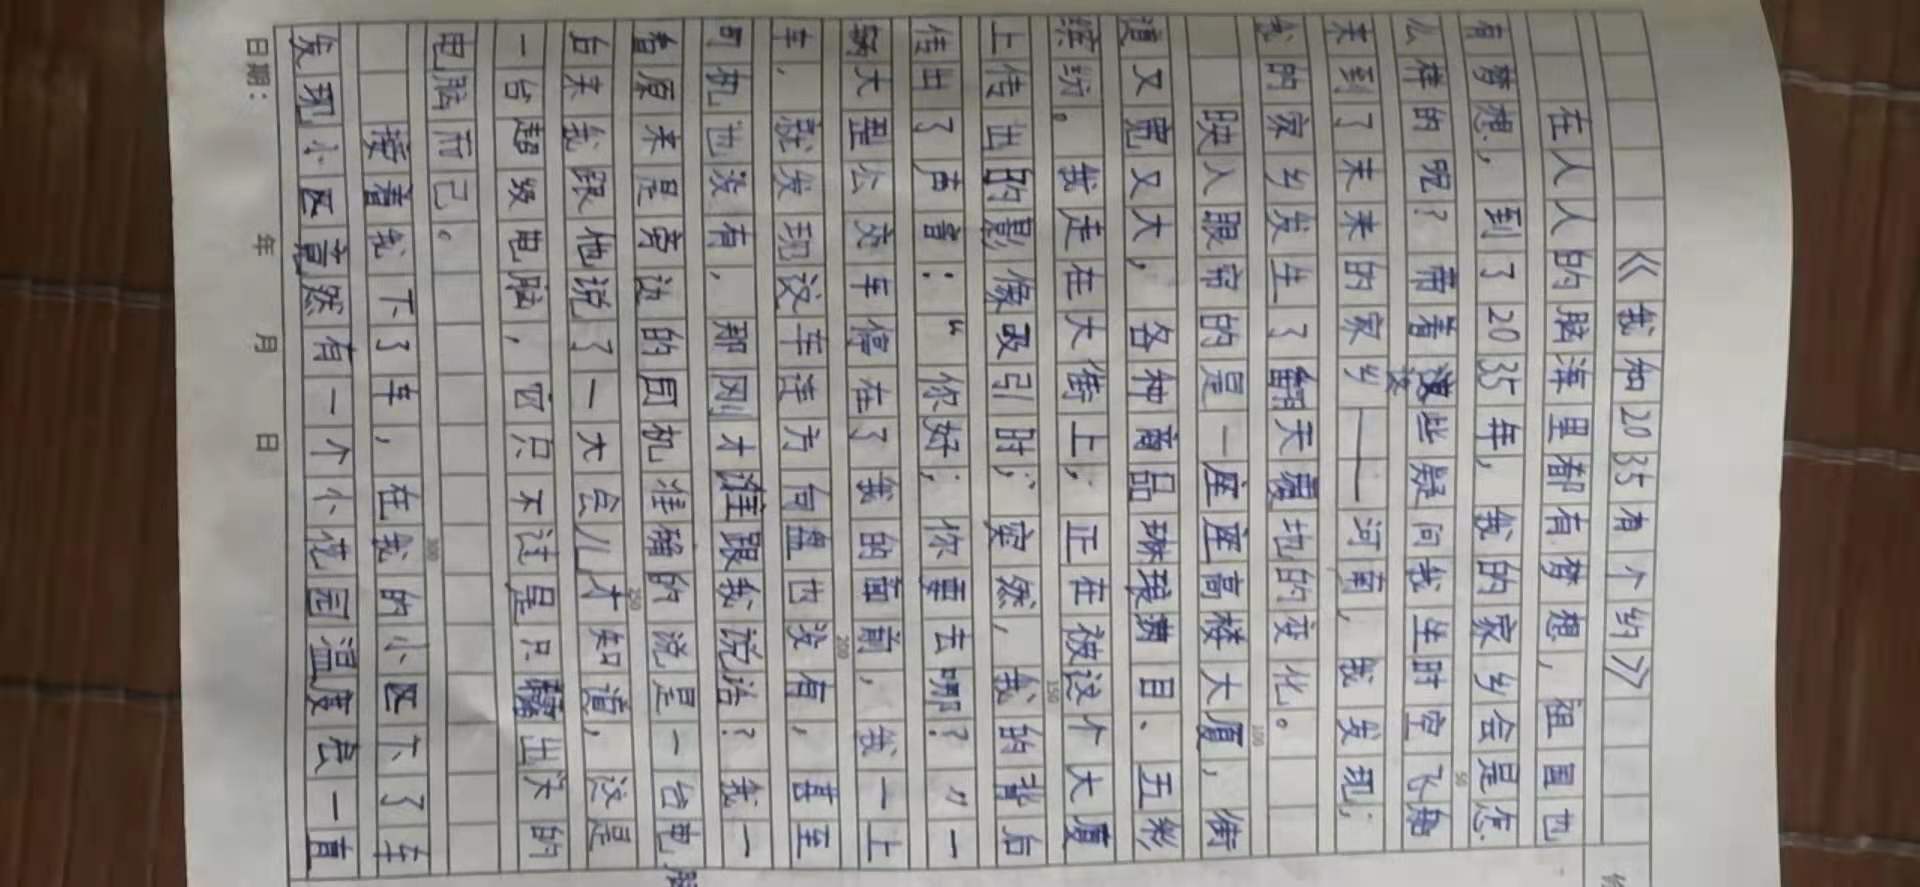 《我和2035有个约》
在人人的脑海里都有梦想，祖国也
有梦想，到了2035年，我的家乡会是怎
么样的呢？带着这些疑问我坐时空飞船
来到了未来的家乡——河南，我发现，
我的家乡发生了翻天覆地的变化。
映入眼帘的是一座座高楼大厦，街
道又宽又大，各种商品琳琅满目、五彩
缤纷。我走在大街上，正在被这个大厦
上传出的影像吸引时，突然，我的背后
传出了声音：“你好，你要去哪？”一
辆大型公交车停在了我的面前，我一上
车，就发现这车连方向盘也没有，甚至
司机也没有，那刚才谁跟我说话？我一
看原来是旁边的司机准确的说是一台电脑
后来我跟他说了一大会儿才知道，这是
一台超级电脑，它只不过是只输出水的
电脑而已。
接着我下了车，在我的小区下了车
发现小区竟然有一个小花园温度总一直
日期： 年 月 日
50
100
150
200
250
300